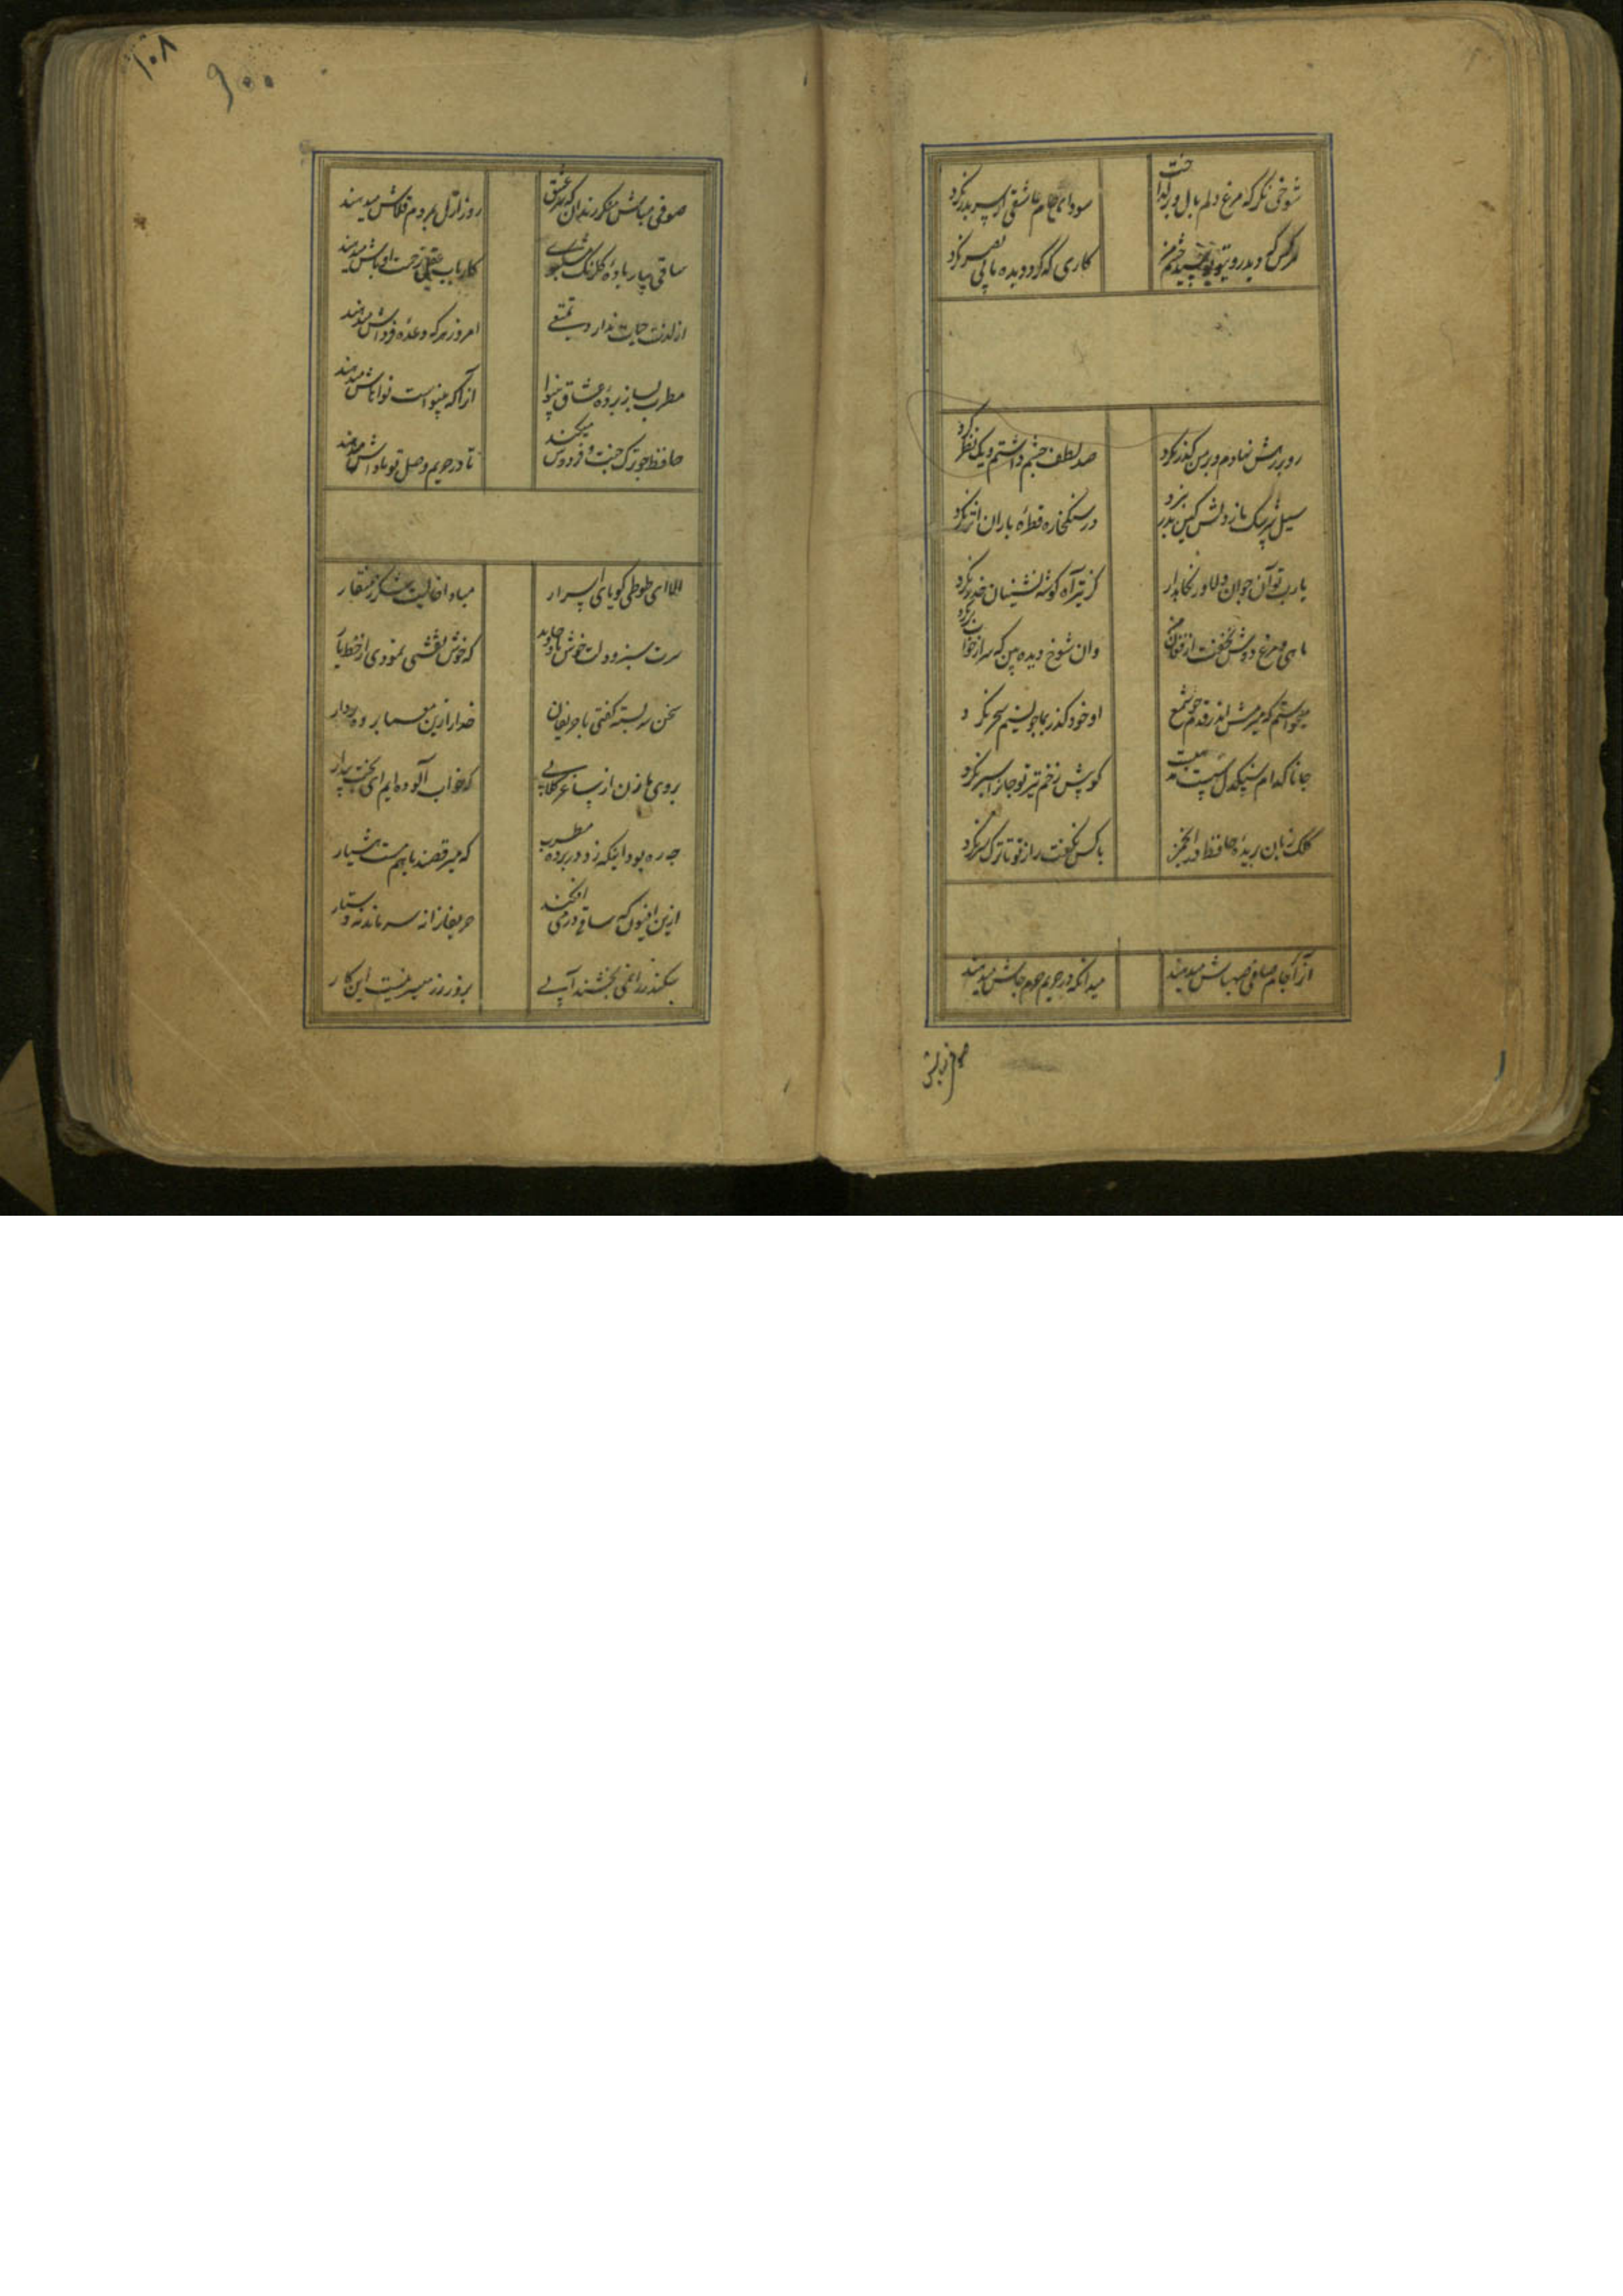 شوخی نکر که مرغ دلم بال و پر کداخت
سودای خام عاشقی از سر بدر نکرد
هر کس که دید روی تو بوسید چشم من
کاری که کرد دیده ما بی بصر نکرد
رو بر رهش نهادم و بر من کذر نکرد
صد لطف چشم داشتم و یک نظر نکرد
سیل سرشک ما ز دلش کین بدر نبرد
در سنک خاره قطره باران اثر نکرد
یا رب تو آن جوان دلاور نکاه دار
کز تیر آه کوشه نشینان حذر نکرد
ماهی و مرغ دوش نخفت از فغان من
وان شوخ دیده بین که سر از خواب بر نکرد
میخواستم که میرمش اندر قدم چو شمع
او خود کذر بما چو نسیم سحر نکرد
جانا کدام سنکدل بیکفایتست
کو پیش زخم تیر تو جانرا سپر نکرد
کلک زبان بریده حافظ در انجمن
با کس نکفت راز تو تا ترک سر نکرد
آنرا که جام صافی صهباش میدهند
میدانکه در حریم حرم جاش میدهند
صوفی مباش
۱۰۸
۹۰۰
صوفی مباش منکر رندان که سر عشق
روز ازل بمردم قلاش میدهند
ساقی بیار باده کلرنک مشکبوی
کار باب عقل زحمت اوباش میدهند
از لذت حیات ندارد تمتعی
امروز هر که وعده فرداش میدهند
مطرب بساز پرده عشاق بینوا
آنرا که بینواست نواهاش میدهند
حافظ چو ترک جنت و فردوس میکند
تا در حریم وصل تو ماواش میدهند
الا ای طوطی کویای اسرار
مبادا خالیت شکر ز منقار
سرت سبز و دلت خوش باد جاوید
که خوش نقشی نمودی از خط یار
سخن سر بسته کفتی با حریفان
خدا را زین معما پرده بردار
بروی ما زن از ساغر کلابی
که خواب آلوده ایم ای بخت بیدار
چه ره بود اینکه زد در پرده مطرب
که میرقصند باهم مست و هشیار
ازین افیون که ساقی در می افکند
حریفانرا نه سر ماند نه دستار
سکندر را نمی بخشند آبی
بزور و زر میسر نیست این کار